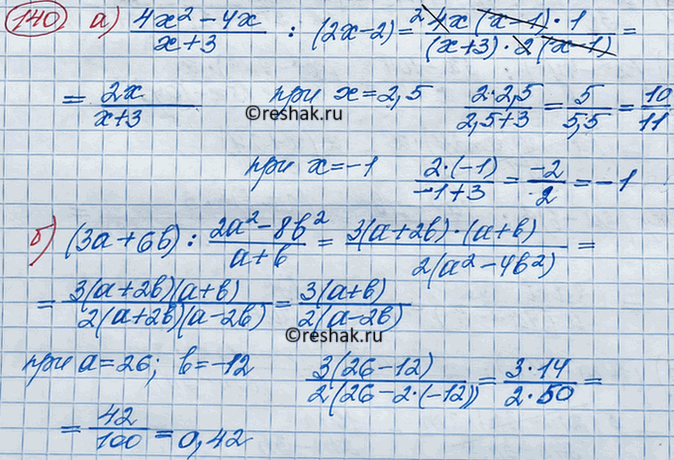 140 а) (4x² - 4x)/(x+3) : (2x-2) = (²4x(x-1)·1)/((x+3)·2(x-1)) =
= 2x/(x+3) при x=2,5 (2·2,5)/(2,5+3) = 5/5,5 = 10/11
©reshak.ru
при x=-1 (2·(-1))/(-1+3) = -2/2 = -1
б) (3a+6b) : (2a²-8b²)/(a+b) = (3(a+2b)·(a+b))/(2(a²-4b²)) =
= (3(a+2b)(a+b))/(2(a+2b)(a-2b)) = (3(a+b))/(2(a-2b))
©reshak.ru
при a=26; b=-12 (3(26-12))/(2(26-2·(-12))) = (3·14)/(2·50) =
= 42/100 = 0,42